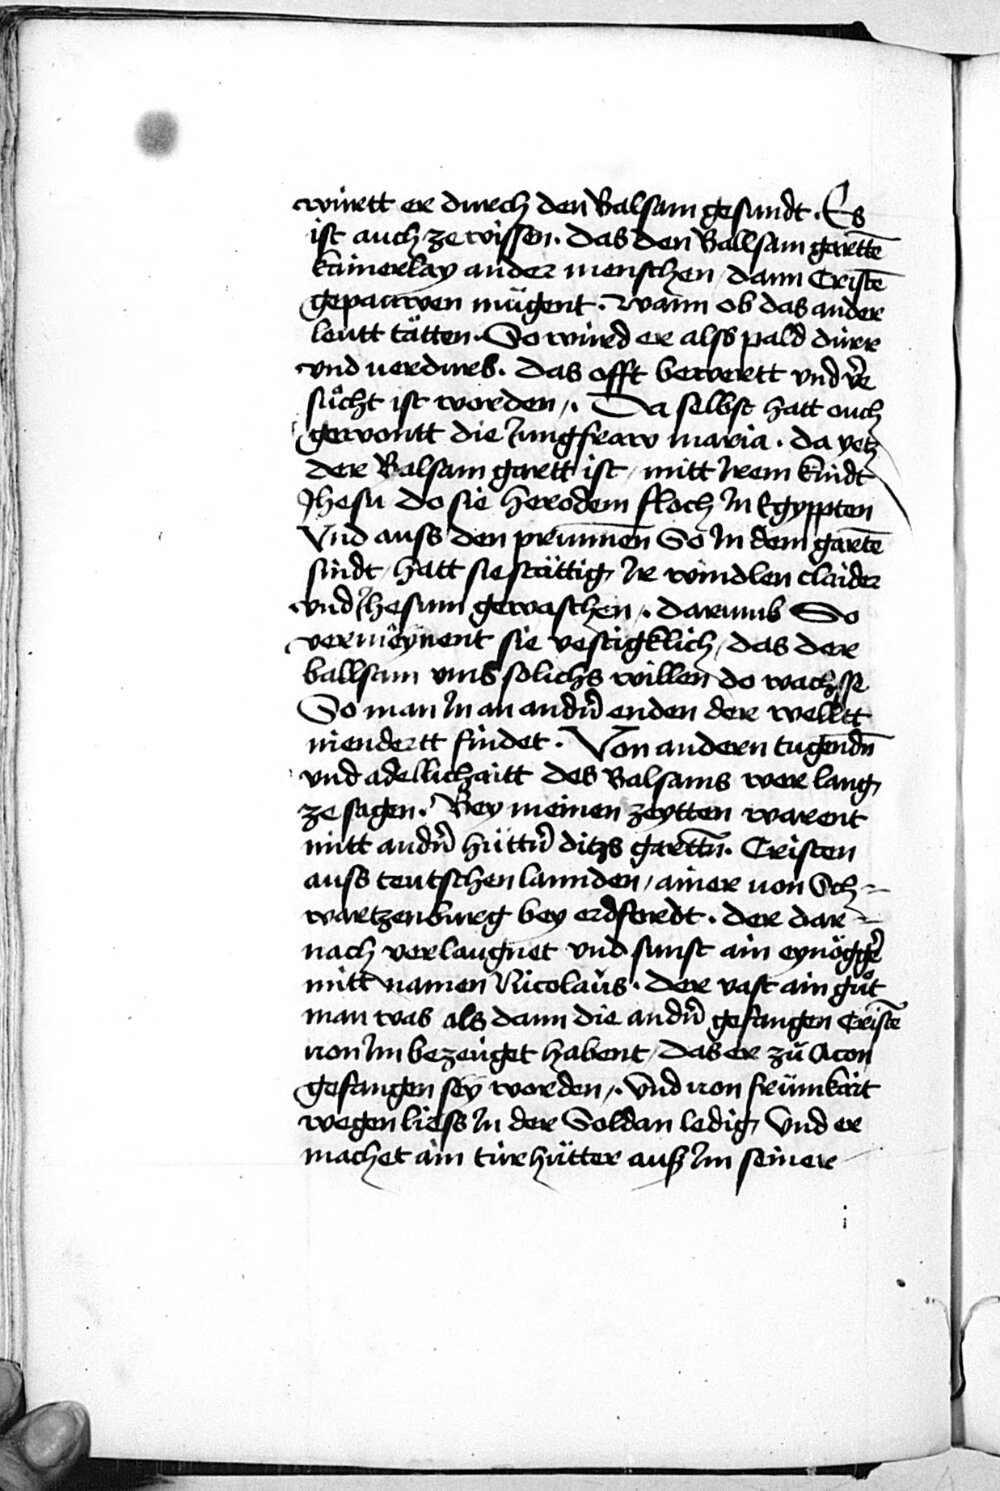 württ er durch den Balsam gesundt. Es
ist auch ze wissen. das den Ballsam gartt̄e
kainerlay ander menschen / dann Crist̄e
gepauwen mügent. wann ob das ander
leutt tätten. So würd er alss pald dürr
vnd uerdurb. das offt bewertt vnd v̄e
sůcht ist worden /. Da selbst hatt ouch
gewontt die Jungfraw maria. da yetz
der Balsam gartt ist / mitt Irem kindt
Jhesu do sie herodem floch In Egyppten
Vnd auss den prunnen So In dem gart̄e
sindt / hatt sie stättig Ir windlen claider
vnd Jhesum gewaschen /. darumb So
vermeynent sie vestigklich / das der
ballsam vmb solichs willen do wachsse
So man In an andn̄ enden der welltt
niendertt findet. Von andern tugendn̄
vnd adellichaitt des Balsams wer lang
ze sagen. Bey meinen zeytten warent
mitt andn̄ hüttn̄ ditzs garttn̄. Cristen
auss teutschen lannden / ainer uon Sch=
wartzenburg bey erdfordt. der dar=
nach verlaugnet vnd sunst ain eynöggē
mitt namen Nicolaus. der vast ain gůt
man was als dann die andn̄ gefangen Crist̄e
uon Im bezeuget habent / das er zů Acon
gefangen sey worden /. Vnd uon frümkait
wegen liess In der Soldan ledig Vnd er
machet ain türhütter auß Im seiner